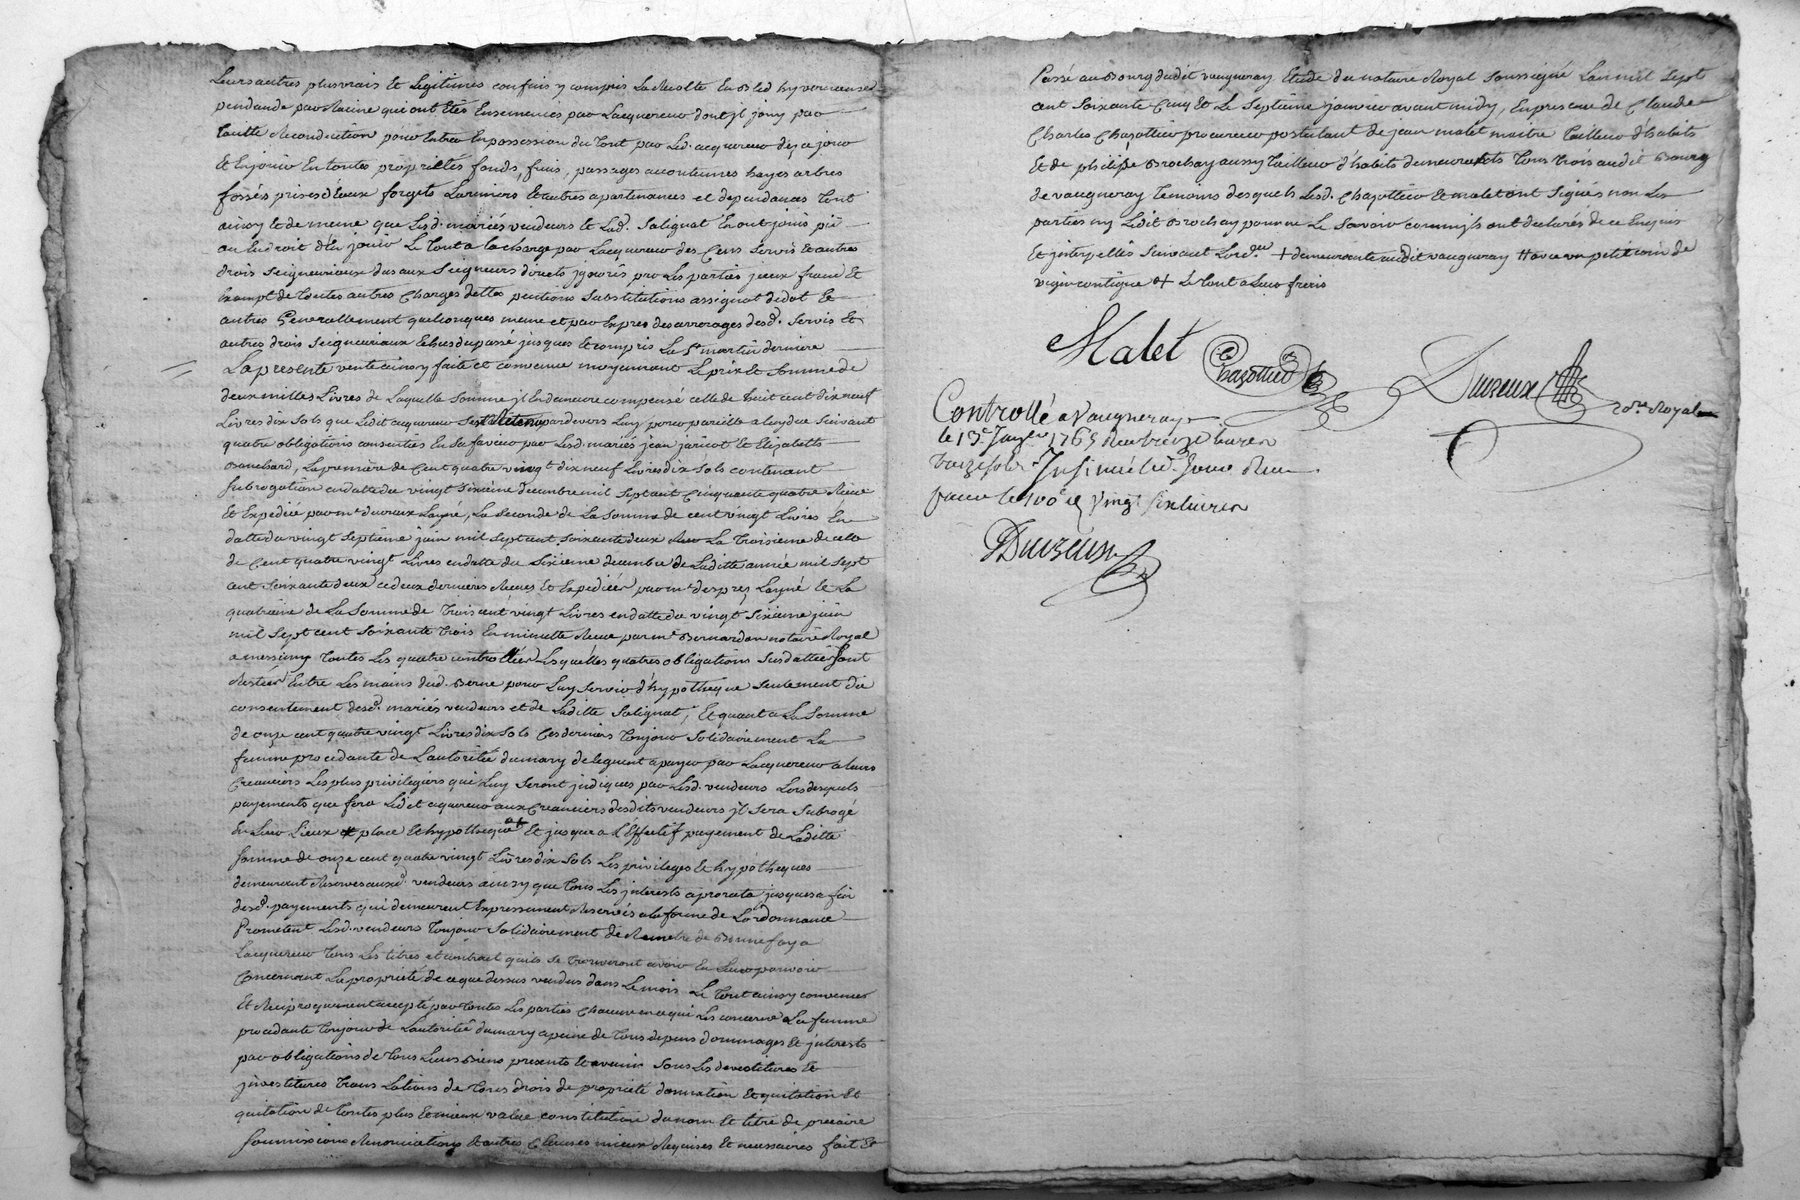 Leurs autres plus vrais et Legitimes confins y compris La Recolte En Bled hyvernau
pendande par Racine qui ont Etés Ensemencés par Lacquereur dont jl jouy par
taiitte Reconduction pour Entrer En possession du tout par Led. acquereur dez ce jour
Et En jouir En toutes proprietés fonds, fruis, passages accoutumés hayes arbres
fossés prises d'Eaux forgets Larmiers Et autres apartenances et dependances tout
ainsy Et de meme que Lesd. mariés vendeurs Et Lad.e Salignat En ont jouis pû
ou Eu droit d'En jouir Le tout a la charge par Lacquereur des Cens Servis Et autres
drois Seigneuriaux dus aux Seigneurs directs jgnorés par Les parties jceux franc Et
Exempt de toutes autres Charges dettes pentions Substitutions assignat de dot Et
autres Generallement quelconques meme et par Expres des arrerages desd. Servis Et
autres drois Seigneuriaux Echus du passé jusques et compris La St martin derniere
La presente vente ainsy faite et convenue moyennant Le prix Et Somme de
deux milles Livres de Laquelle Somme jl En demeure compensé celle de huit cent dix neuf
Livres dix Sols que Ledit acquereur Se Retenu pardevers Luy pour pareille a luy due Suivant
quatre obligations consenties En Sa faveur par Lesd. mariés jean jaricot Et Elizabeth
Bouchard, La première de Cent quatre vingt dix neuf Livres dix Sols contenant
Subrogation en datte du vingt Sixième decembre mil Sept cent Cinquante quatre Recue
Et Expediée par me durieux Layné, La Seconde de La Somme de cent vingt Livres En
datte du vingt Septième juin mil Sept cent Soixante deux La troisieme de celle
de Cent quatre vingt Livres en datte du Sixieme decembre de Laditte année mil Sept
cent Soixante deux ces deux dernieres Recues Et Expediées par me despres Layné Et La
quatrième de La Somme de trois cent vingt Livres en datte du vingt Sixieme juin
mil Sept cent Soixante trois En minutte Recue par me Bernardon notaire Royal
a messimy toutes Les quatre controllées Lesquelles quatres obligations Susdattées Sont
Restées Entre Les mains dud. Berne pour Luy Servir d'hypotheque Seulement du
consentement desd. mariés vendeurs et de Laditte Salignat, Et quant a La Somme
de onze cent quatre vingt Livres dix Sols Ces derniers toujour Solidairement La
femme procedante de L'autorité du mary deleguent a payer par Lacquereur a leurs
Creanciers Les plus privilegiers qui Luy Seront jndiqués par Lesd. vendeurs Lors desquels
payements que fera Ledit acquereur aux Creanciers desdits vendeurs jl Sera Subrogé
En Leur Lieux place Et hypotheque Et jusque a L'Effectif payement de Laditte
Somme de onze cent quatre vingt Livres dix Sols Les privileges Et hypotheques
demeurent Reservés auxd. vendeurs ainsy que tous Les jnterests a prorata jusques a fin
desd. payements qui demeurent Expressement Reservés a la forme de Lordonnance
Promettent Lesd. vendeurs toujour Solidairement de Remettre de Bonne foy a
Lacquereur tous Les titres et contract quils Se trouveront avoir En Leur pouvoir
Concernant La proprieté de ce que dessus vendus dans Le mois Le tout ainsy convenus
Et Reciproquement accepté par toutes Les parties Chacune En ce qui Les concerne La femme
procedante toujour de L'autorité du mary a peine de tous depens dommages Et jnterests
par obligations de tous Leurs Biens presents Et avenir Sous Les devestitures Et
jnvestitures translations de tous drois de proprieté donnation Et quitation Et
quitation de toutes plus Et mieux value constitution du nom Et titre de precaire
Soumissions Renonciations Et autres Clauses mieux Requises Et necessaires fait Et
Passé au Bourg dudit vaugneray Etude du notaire Royal Soussigné L'an mil Sept
cent Soixante Cinq Et Le Septième janvier avant midy, En presence de Claude
Charles Chazottier procureur postulant de jean malet maitre tailleur d'habits
Et de philippe Brochay aussy tailleur d'habits demeurants tous trois audit Bourg
de vaugneray temoins desquels Lesd. Chazottier Et malet ont Signés non Les
parties ny Ledit Brochay pour ne Le Savoir comm'jls ont declarés de ce Enquis
Et jnterpellés Suivant Lord.ce + demeurante audit vaugneray # avec un petit coin de
vigne contigue ++ Le tout a Leur frais
Malet Chazottier Durieux
nore Royal
Controllé a Vaugneray
le 13e Janv.er 1765 Reçu treize livres
treize sols Insinué led. Jour Reçu
pour le 100e d. Vingt six livres
Durieux